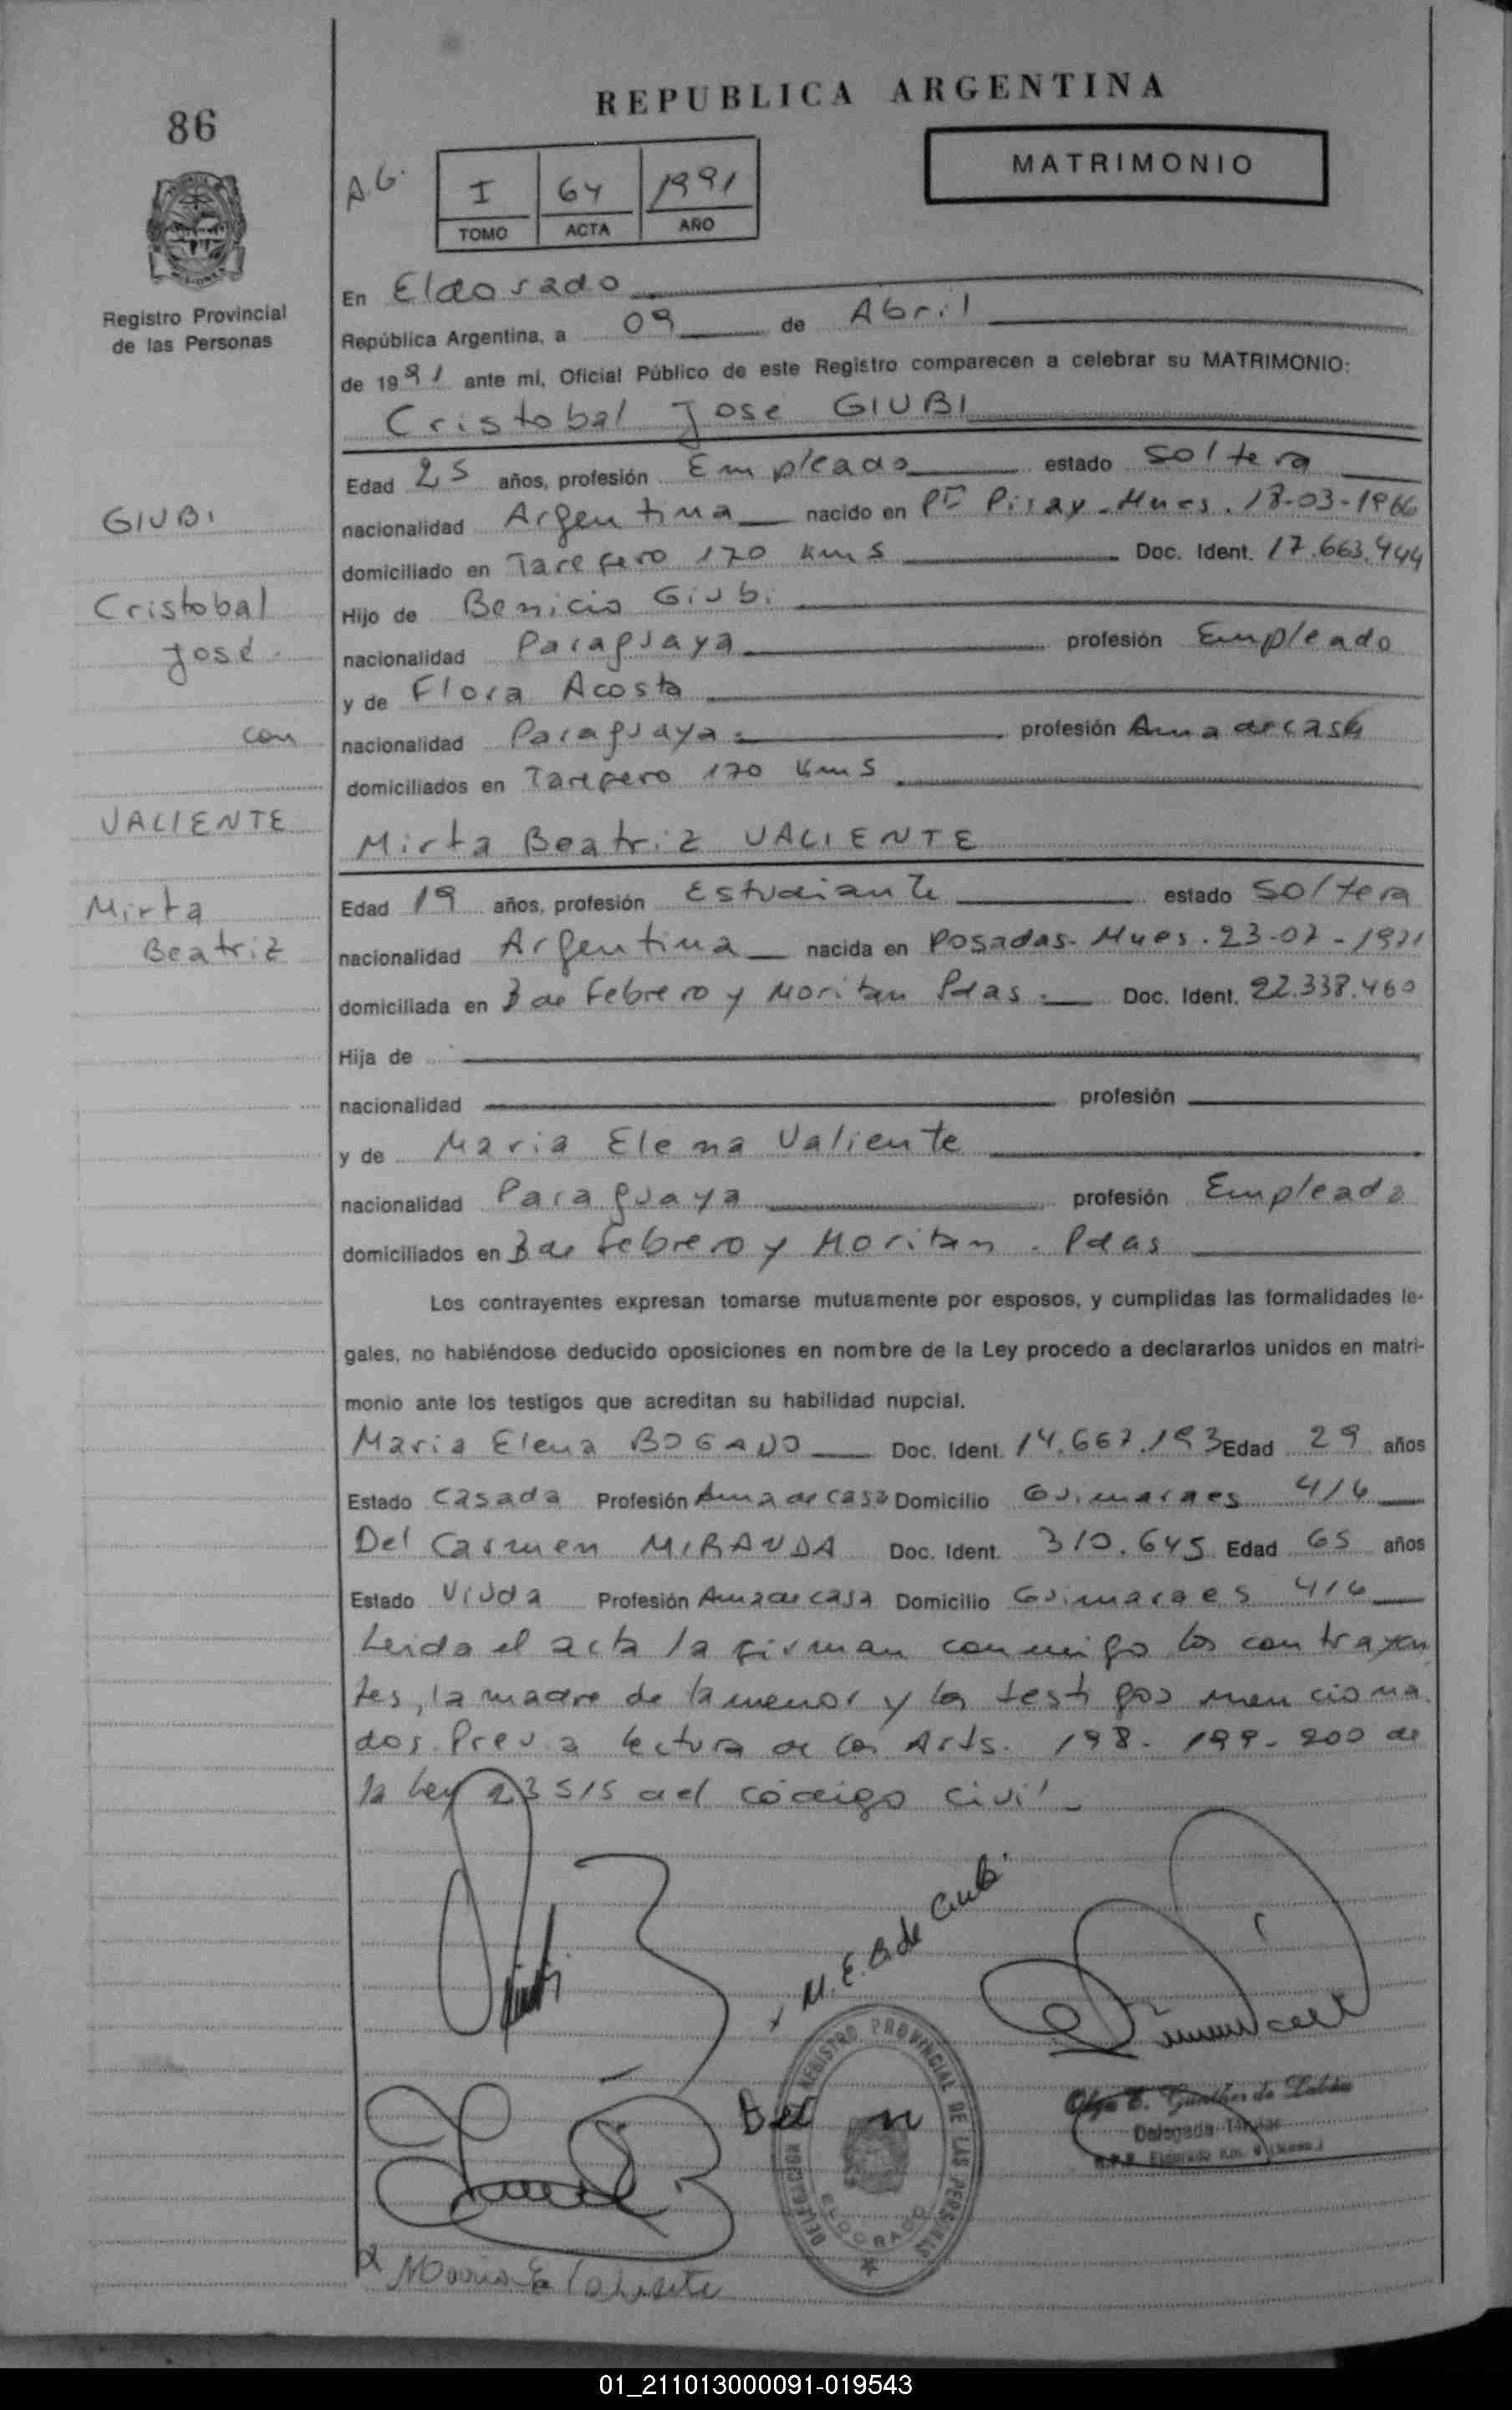 REPUBLICA ARGENTINA
86
MATRIMONIO
A.G.
I 64 1991
TOMO ACTA AÑO
Registro Provincial
de las Personas
En Eldorado
República Argentina, a 09 de Abril
de 1991 ante mí, Oficial Público de este Registro comparecen a celebrar su MATRIMONIO:
Cristobal Jose GIUBI
Edad 25 años, profesión Empleado estado soltero
GIUBI
nacionalidad Argentina nacido en Pto Piray - Mnes. 18-03-1966
domiciliado en Tarefero 170 Kms Doc. Ident. 17.663.944
Cristobal
Hijo de Benicio Giubi
José
nacionalidad Paraguaya profesión Empleado
y de Flora Acosta
con
nacionalidad Paraguaya profesión Ama de casa
domiciliados en Tarefero 170 Kms
VALIENTE
Mirta Beatriz VALIENTE
Mirta
Edad 19 años, profesión Estudiante estado Soltera
Beatriz
nacionalidad Argentina nacida en Posadas - Mnes. 23-07-1971
domiciliada en 3 de Febrero y Moritan Pdas - Doc. Ident. 22.338.460
Hija de
nacionalidad profesión
y de Maria Elena Valiente
nacionalidad Paraguaya profesión Empleada
domiciliados en 3 de Febrero y Moritan - Pdas
Los contrayentes expresan tomarse mutuamente por esposos, y cumplidas las formalidades le-
gales, no habiéndose deducido oposiciones en nombre de la Ley procedo a declararlos unidos en matri-
monio ante los testigos que acreditan su habilidad nupcial.
Maria Elena BOGADO Doc. Ident. 14.667.193 Edad 29 años
Estado Casada Profesión Ama de casa Domicilio Guimaraes 416
Del Carmen MIRANDA Doc. Ident. 310.645 Edad 65 años
Estado Viuda Profesión Ama de casa Domicilio Guimaraes 416
Leida el acta la firman conmigo los contrayen
tes, la madre de la menor y los testigos menciona
dos. Previa lectura de los Arts. 198 - 199 - 200 de
la Ley 23515 del código civil -
M. E. B. de Giubi
REGISTRO PROVINCIAL DE LAS PERSONAS
DELEGACION
ELDORADO
Delegada Titular
Maria E Valiente
01_211013000091-019543